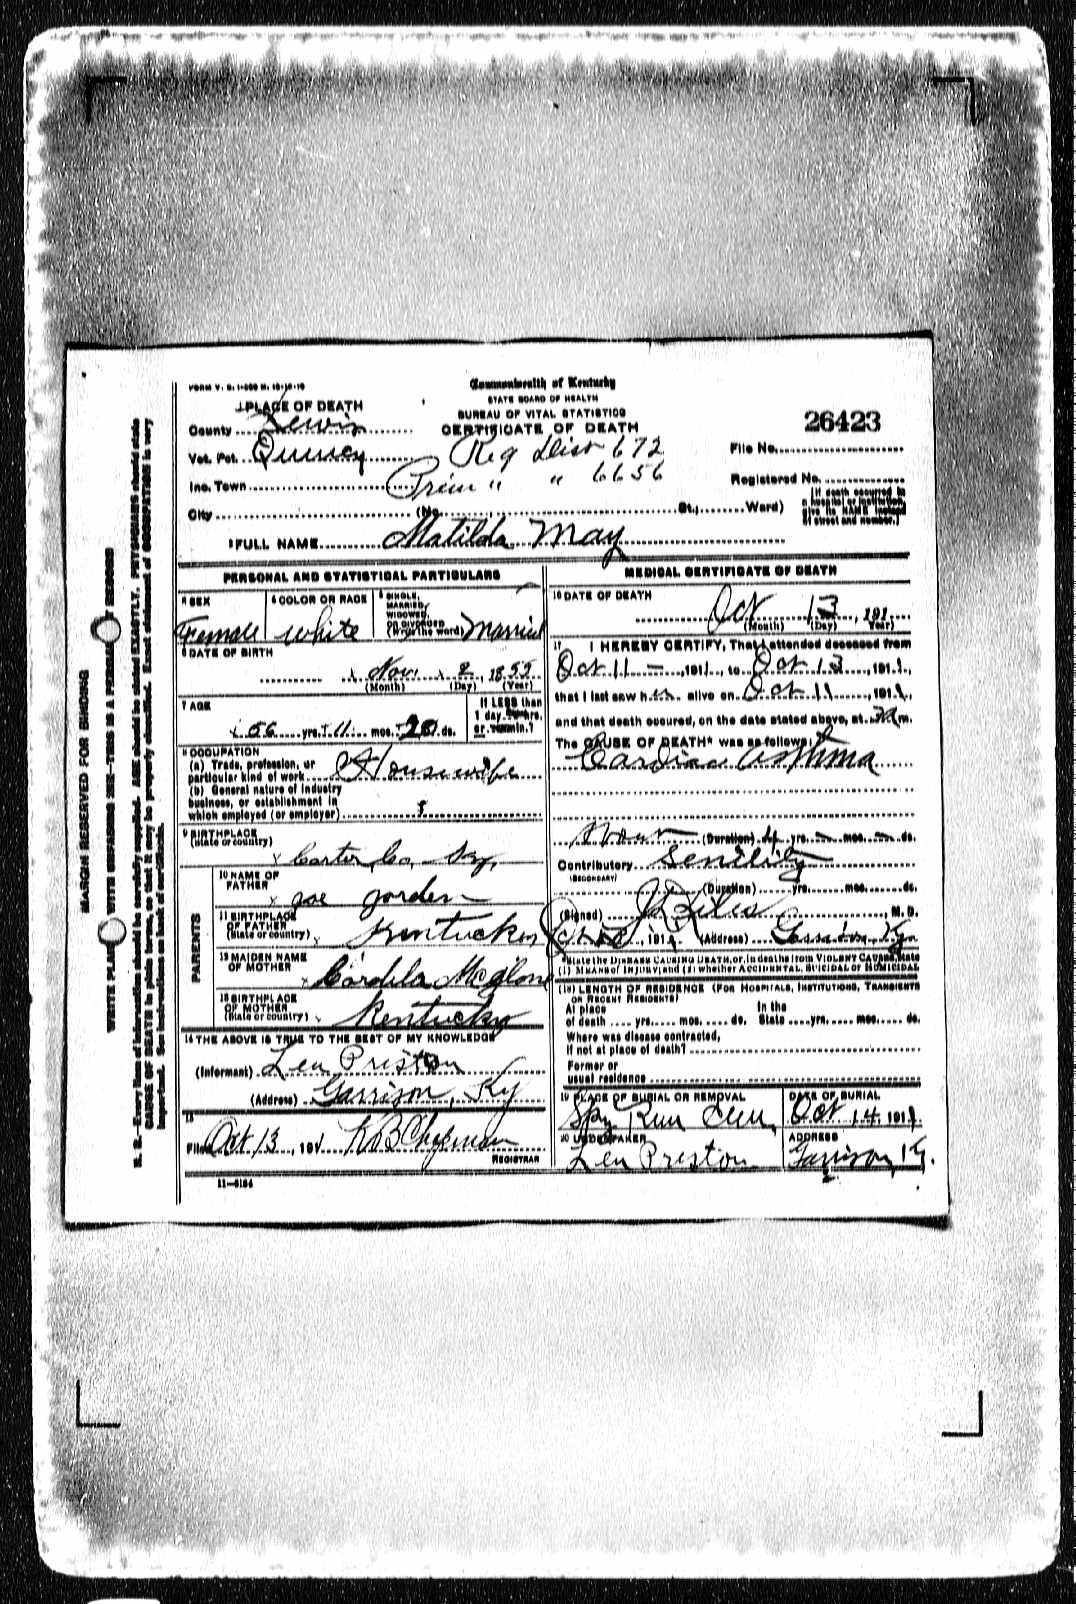 FORM V. S. 1-
Commonwealth of Kentucky
STATE BOARD OF HEALTH
BUREAU OF VITAL STATISTICS
CERTIFICATE OF DEATH
1 PLACE OF DEATH
County Lewis
Vot. Pct. Quincy
Reg Dist 672
Inc. Town
Prim " " 6656
City (No. St., Ward)
26423
File No.
Registered No.
[If death occurred in a hospital or institution, give its NAME instead of street and number.]
2 FULL NAME Matilda May
PERSONAL AND STATISTICAL PARTICULARS
3 SEX Female
4 COLOR OR RACE white
5 SINGLE, MARRIED, WIDOWED, OR DIVORCED (Write the word) Married
6 DATE OF BIRTH
Nov 2, 1855
(Month) (Day) (Year)
7 AGE
56 yrs. 11 mos. ds.
If LESS than 1 day, hrs. or min.?
8 OCCUPATION
(a) Trade, profession, or particular kind of work Housewife
(b) General nature of industry business, or establishment in which employed (or employer)
9 BIRTHPLACE
(State or country)
Carter Co, Ky,
PARENTS
10 NAME OF FATHER Joe Jorden
11 BIRTHPLACE OF FATHER (State or country) Kentucky
12 MAIDEN NAME OF MOTHER McGlone
13 BIRTHPLACE OF MOTHER (State or country) Kentucky
14 THE ABOVE IS TRUE TO THE BEST OF MY KNOWLEDGE
(Informant) Len Preston
(Address) Garrison, Ky
15
Filed Oct 13, 191 KB Chapman
REGISTRAR
11-5184
MEDICAL CERTIFICATE OF DEATH
16 DATE OF DEATH
Oct 13, 191
(Month) (Day) Year)
17 I HEREBY CERTIFY, That I attended deceased from
Oct 11 - , 1911, to Oct 13, 1911,
that I last saw her alive on Oct 11, 1911,
and that death occured, on the date stated above, at m.
The CAUSE OF DEATH* was as follows:
Cardiac asthma
(Duration) 4 yrs. mos. ds.
Contributory Senility
(SECONDARY)
(Duration) yrs. mos. ds.
(Signed) , M. D.
, 191 (Address) Garrison Ky
*State the DISEASE CAUSING DEATH, or, in deaths from VIOLENT CAUSES, state (1) MEANS OF INJURY; and (2) whether ACCIDENTAL, SUICIDAL or HOMICIDAL
(18) LENGTH OF RESIDENCE (FOR HOSPITALS, INSTITUTIONS, TRANSIENTS OR RECENT RESIDENTS)
At place of death yrs. mos. ds. In the State yrs. mos. ds.
Where was disease contracted,
if not at place of death?
Former or
usual residence
19 PLACE OF BURIAL OR REMOVAL
Spy Run Cem,
DATE OF BURIAL
Oct 14, 1911
20 UNDERTAKER
Len Preston
ADDRESS
Garrison, Ky.
MARGIN RESERVED FOR BINDING
WRITE PLAINLY WITH UNFADING INK-THIS IS A PERMANENT RECORD
N. B.-Every item of information should be carefully supplied. AGE should be stated EXACTLY. PHYSICIANS should state
CAUSE OF DEATH in plain terms, so that it may be properly classified. Exact statement of OCCUPATION is very
important. See instructions on back of certificate.